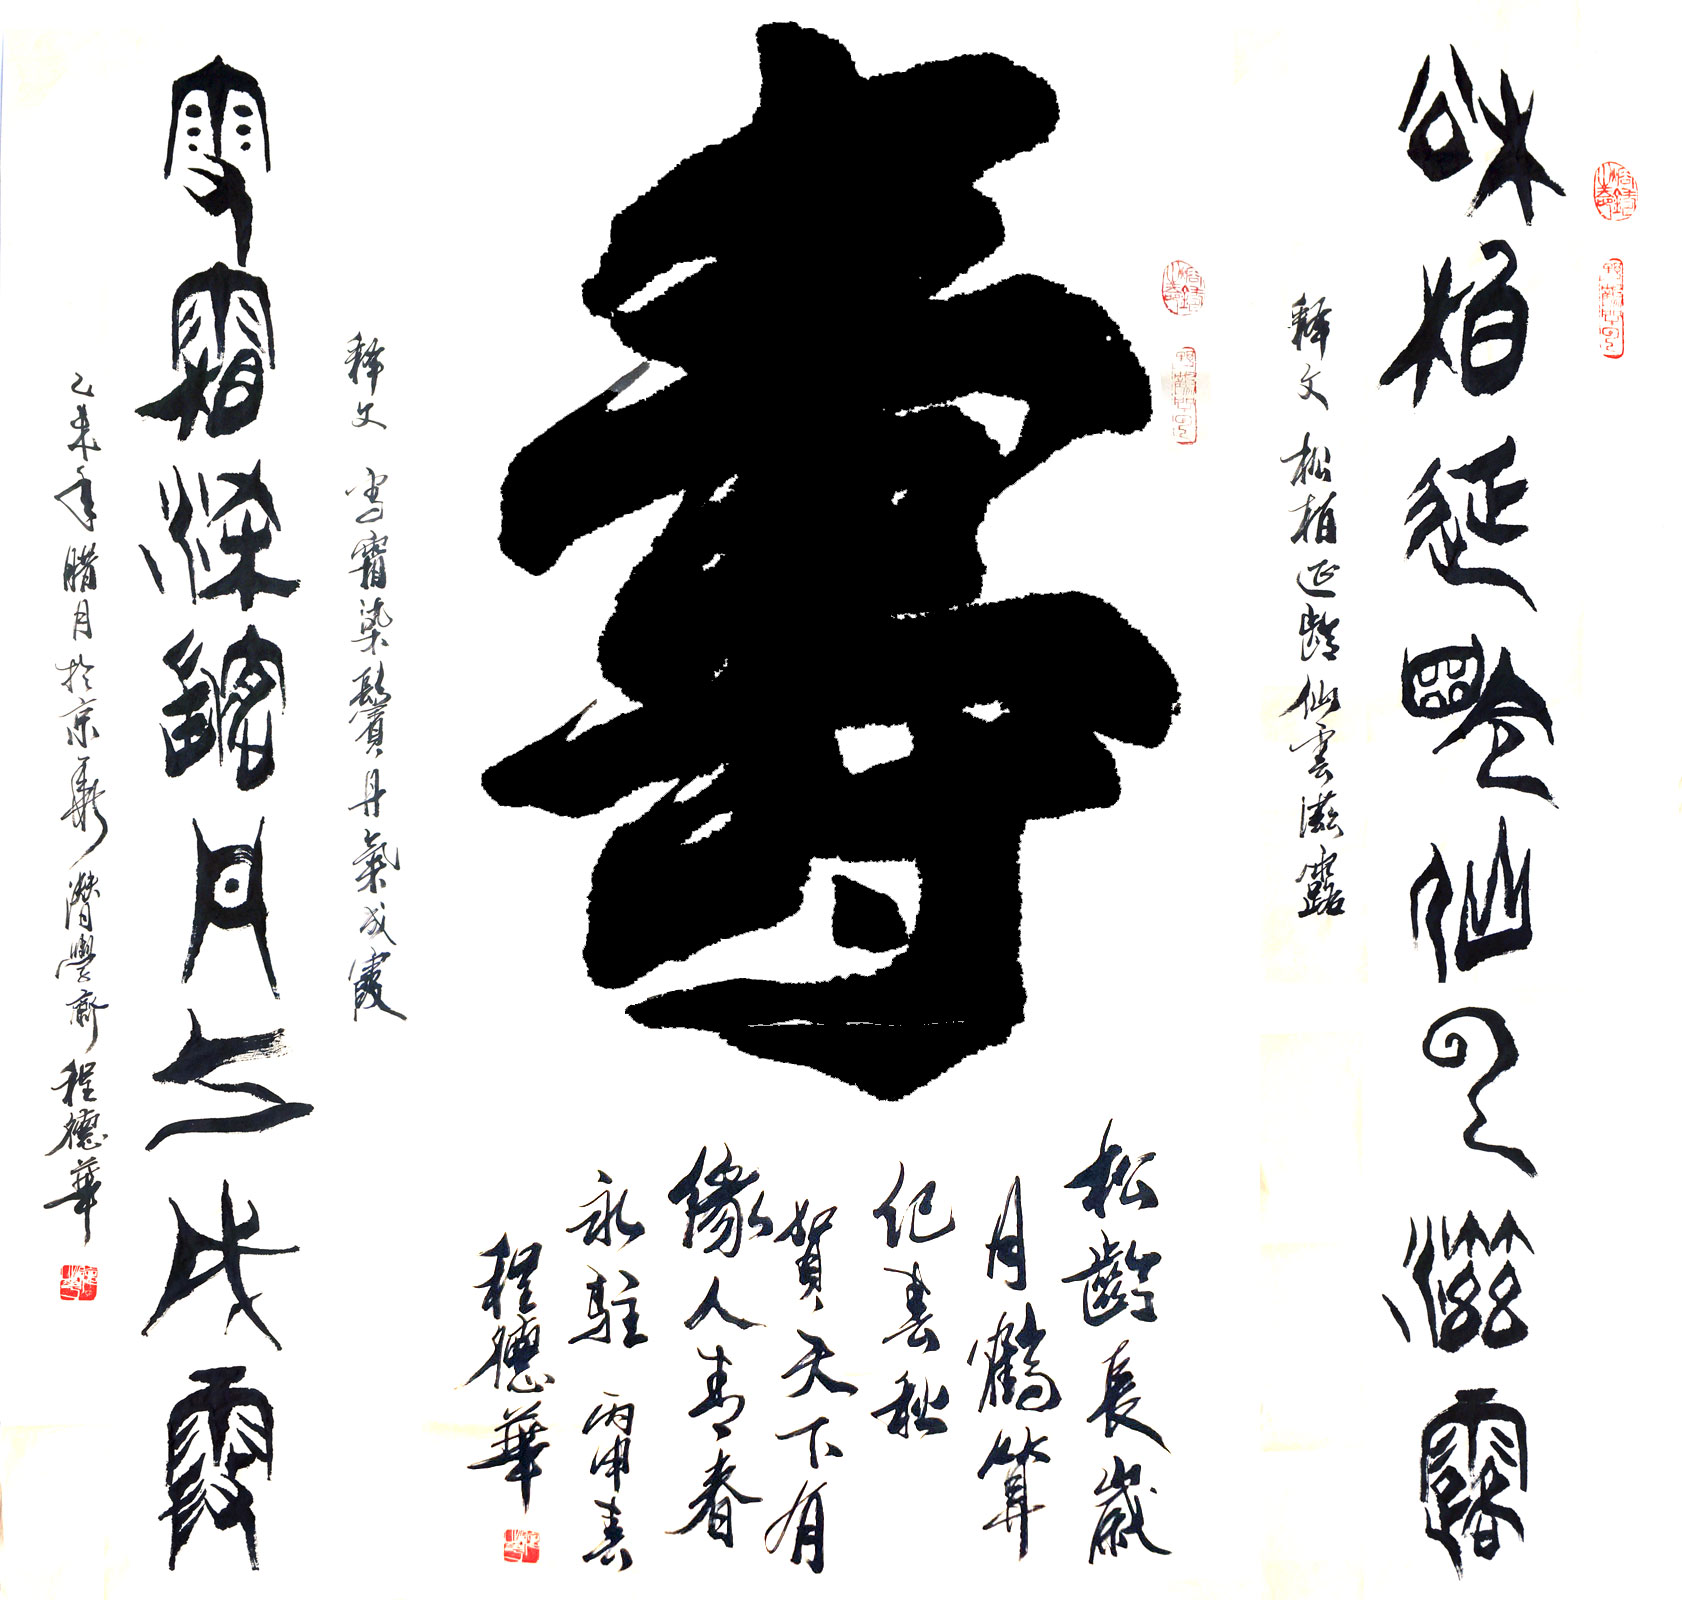 松柏延齡仙雲滋露
释文 松柏延齡仙雲滋露
壽
松齡長歲
月鶴算
纪春秋
賀天下有
缘人青春
永駐 丙申春
程德華
释文 雪霜染鬢丹氣成霞
雪霜染鬢丹氣成霞
乙未年腊月於京華潛學齋程德華